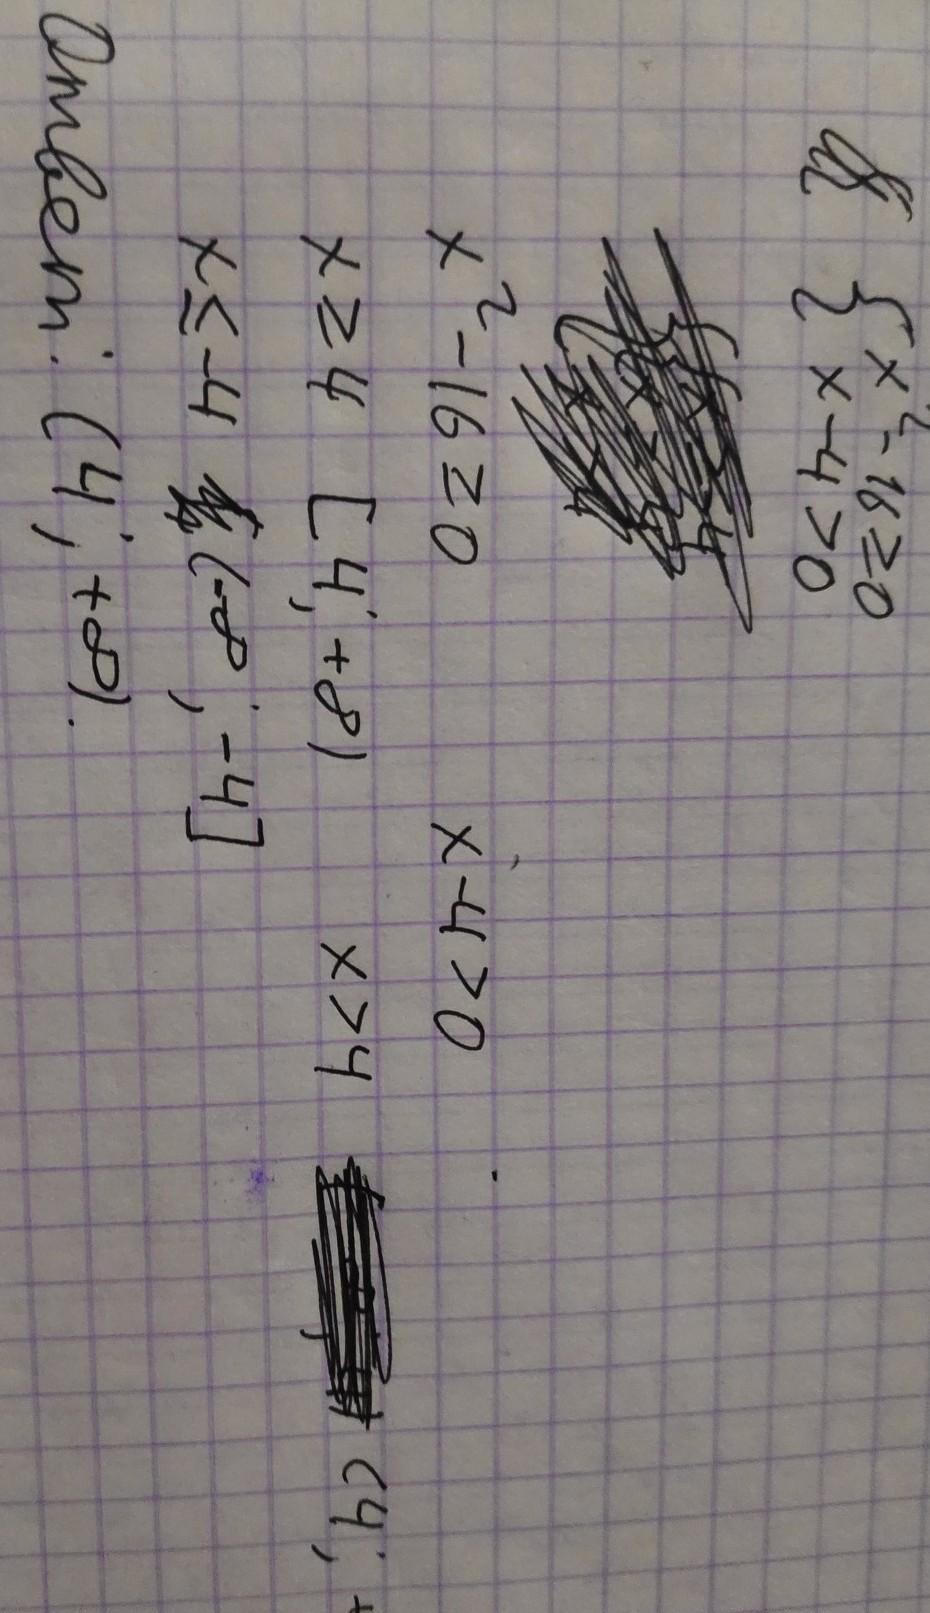 { x²-16≥0
x-4>0
x²-16≥0 x-4>0
x≥4 [4; +∞) x>4 (4; +
x≤-4 (-∞; -4]
Ответ: (4; +∞).